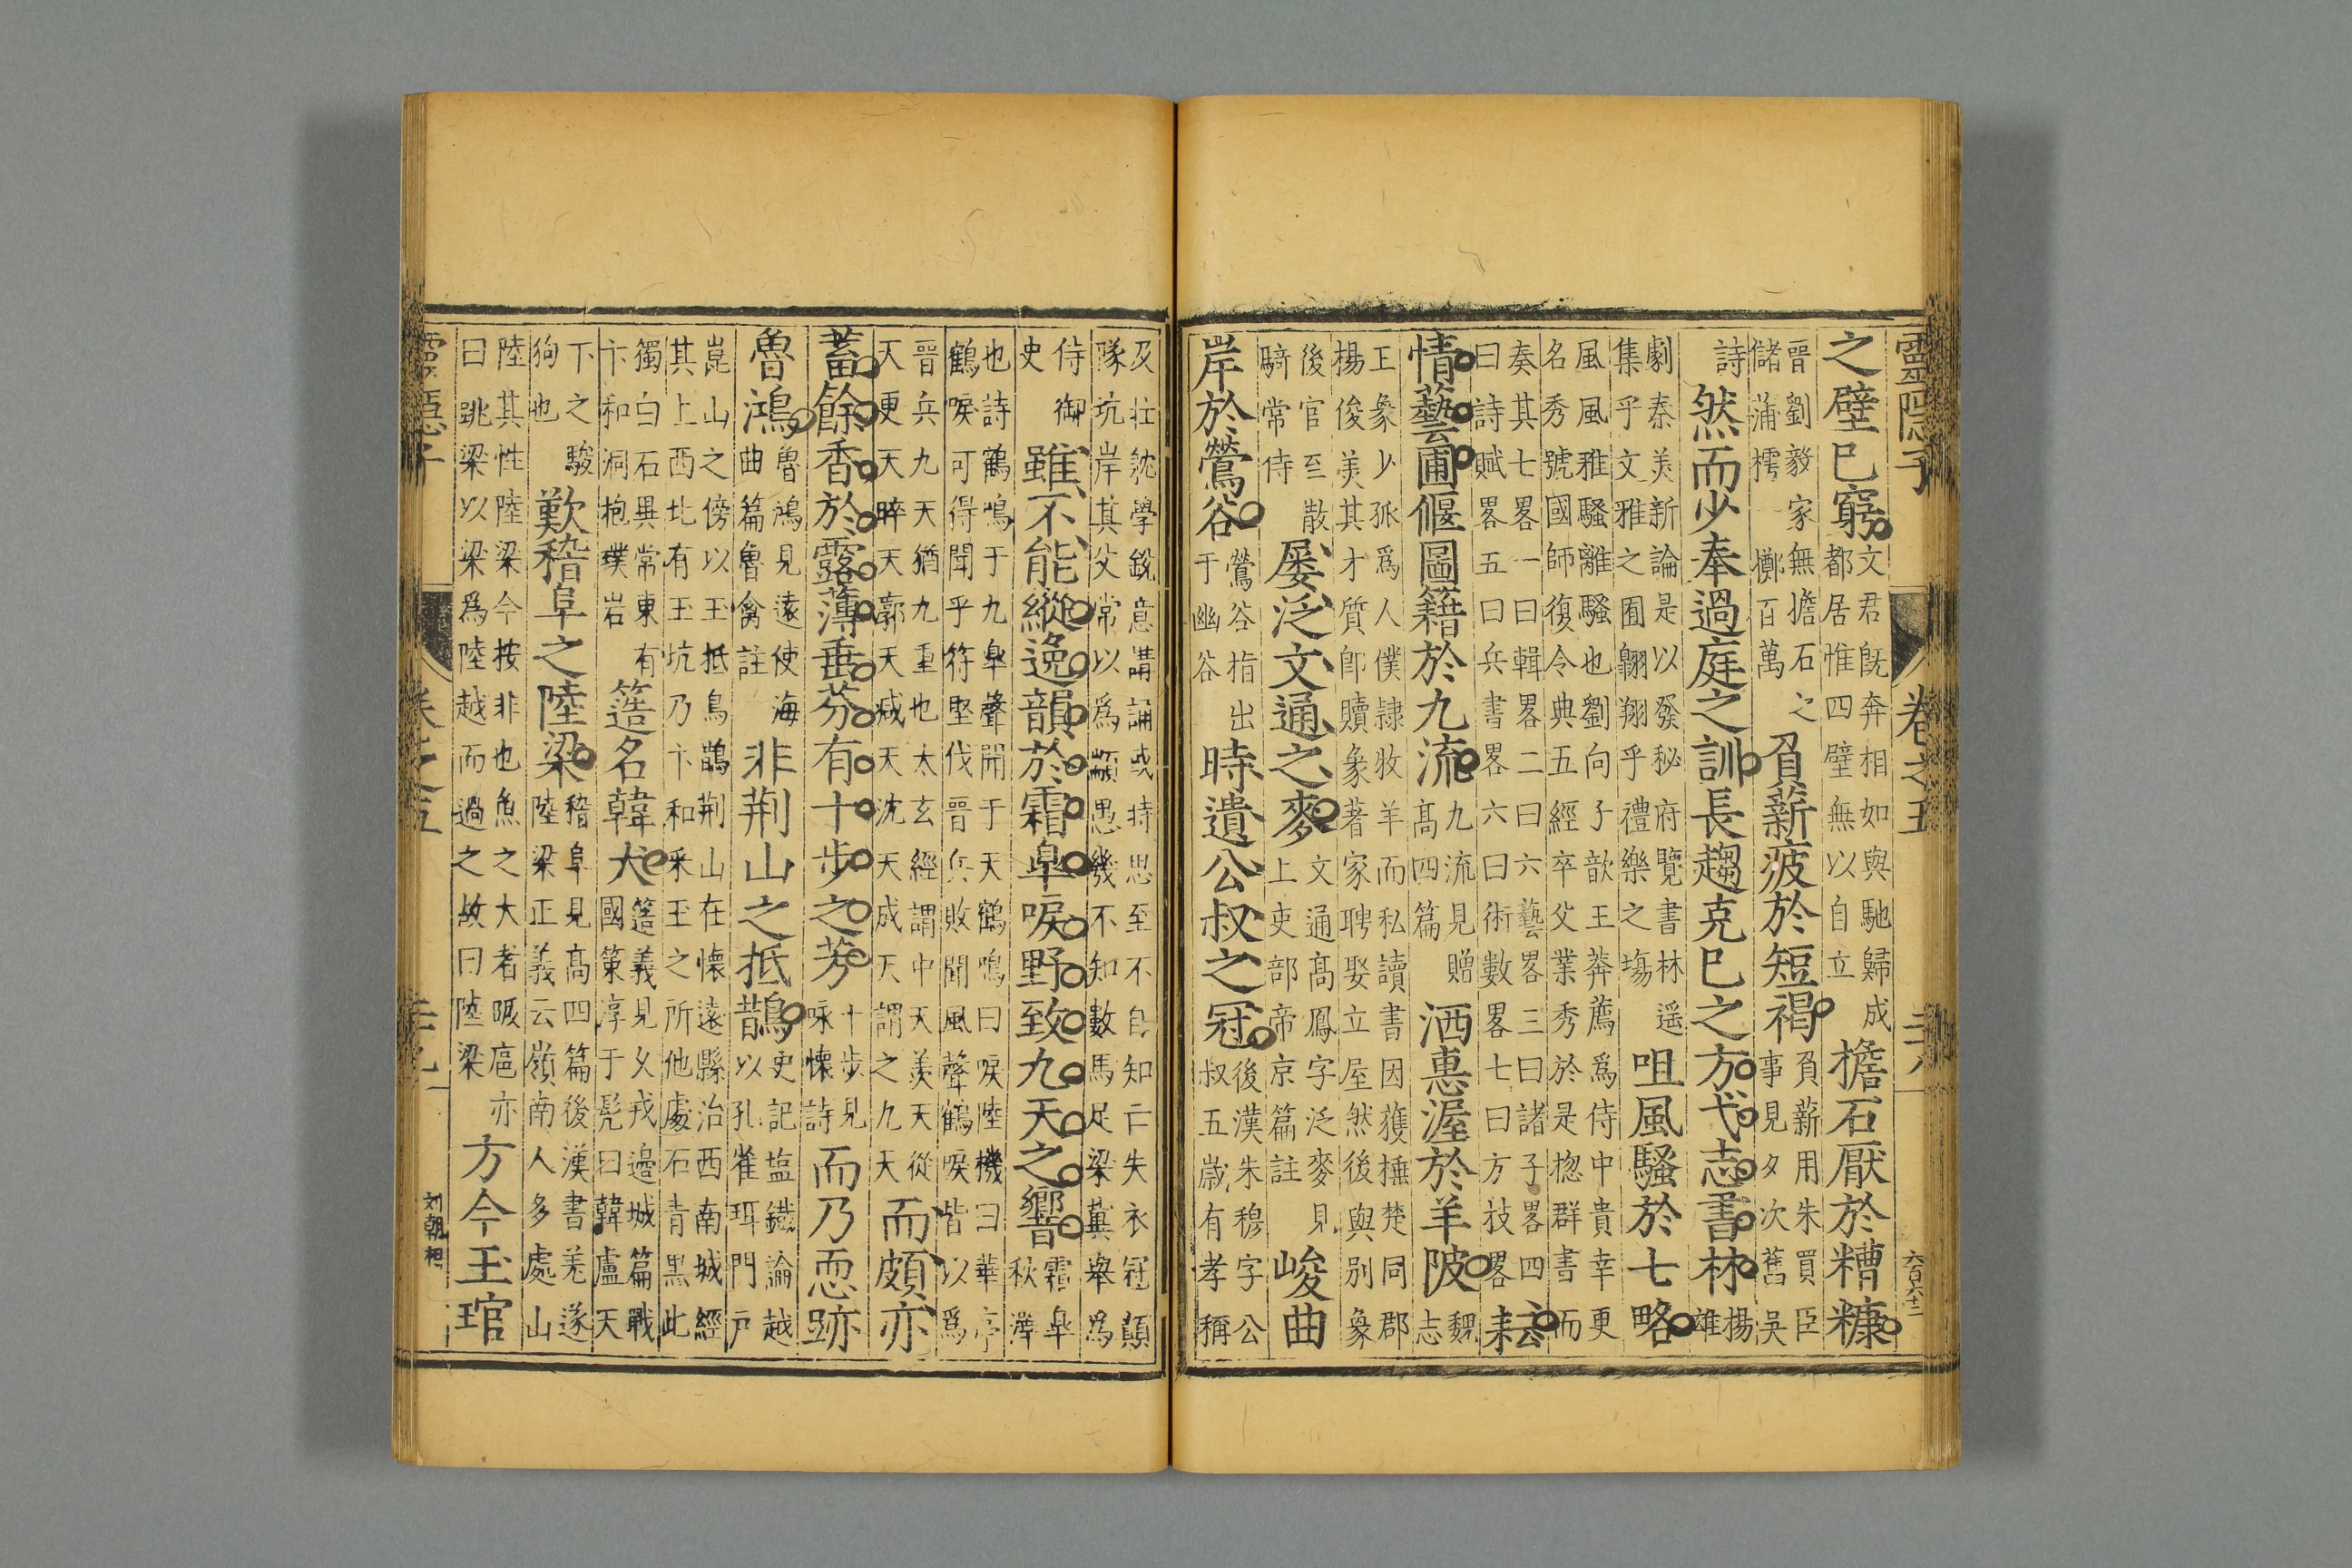 靈隱子 卷之五 二十八 六百六十二
之壁已窮
文君旣奔相如與馳歸成
都居惟四壁無以自立
擔石厭於糟糠
晋劉毅家無擔石之
儲蒲樗擲百萬
負薪疲於短褐
負薪用朱買臣
事見夕次舊吳
詩
然而少奉過庭之訓長趨克已之方弋志書林
楊
雄
劇秦美新論是以發秘府覽書林遥
集乎文雅之囿翺翔乎禮樂之塲
咀風騷於七略
風風雅騷離騷也劉向子歆王莽薦爲侍中貴幸更
名秀號國師復令典五經卒父業秀於是揔群書而
奏其七畧一曰輯畧二曰六藝畧三曰諸子畧四
曰詩賦畧五曰兵書畧六曰術數畧七曰方技畧
耘
情藝圃偃圖籍於九流
九流見贈
髙四篇
洒惠渥於羊陂
魏
志
王象少孤爲人僕隷牧羊而私讀書因獲棰楚同郡
楊俊美其才質卽贖象著家聘娶立屋然後與別象
後官至散
騎常侍
屡泛文通之麥
文通髙鳳字泛麥見
上吏部帝京篇註
峻曲
岸於鶯谷
鶯谷指出
于幽谷
時遺公叔之冠
後漢朱穆字公
叔五歲有孝稱
及壮躭學銳意講誦或持思至不自知亡失衣冠顛
隊坑岸其父常以爲顓愚幾不知數馬足梁冀舉爲
侍御
史
雖不能縱逸韻於霜臯唳野致九天之響
霜臯
秋澤
也詩鶴鳴于九臯聲聞于天鶴鳴曰唳陸機曰華亭
鶴唳可得聞乎符堅伐晋兵敗聞風聲鶴唳皆以爲
晋兵九天猶九重也太玄經謂中天羡天從
天更天睟天廓天減天沈天成天謂之九天
而頗亦
蓄餘香於露薄垂芬有十步之芳
十步見
咏懐詩
而乃恧跡
魯鴻
魯鴻見遠使海
曲篇魯禽註
非荆山之抵鵲
史記塩鐵論越
以孔雀珥門戸
崑山之傍以玉抵鳥鵲荆山在懐遠縣治西南城經
其上西北有玉坑乃卞和采玉之所他處石青黒此
獨白石異常東有
卞和洞抱璞岩
簉名韓犬
簉義見乂戎邊城篇戰
國策淳于髡曰韓盧天
下之駿
狗也
歎稽阜之陸梁
稽阜見髙四篇後漢書羌遂
陸梁正義云嶺南人多處山
陸其性陸梁今按非也魚之大者跋扈亦
曰跳梁以梁爲陸越而過之故曰陸梁
方今玉琯
刘朝相